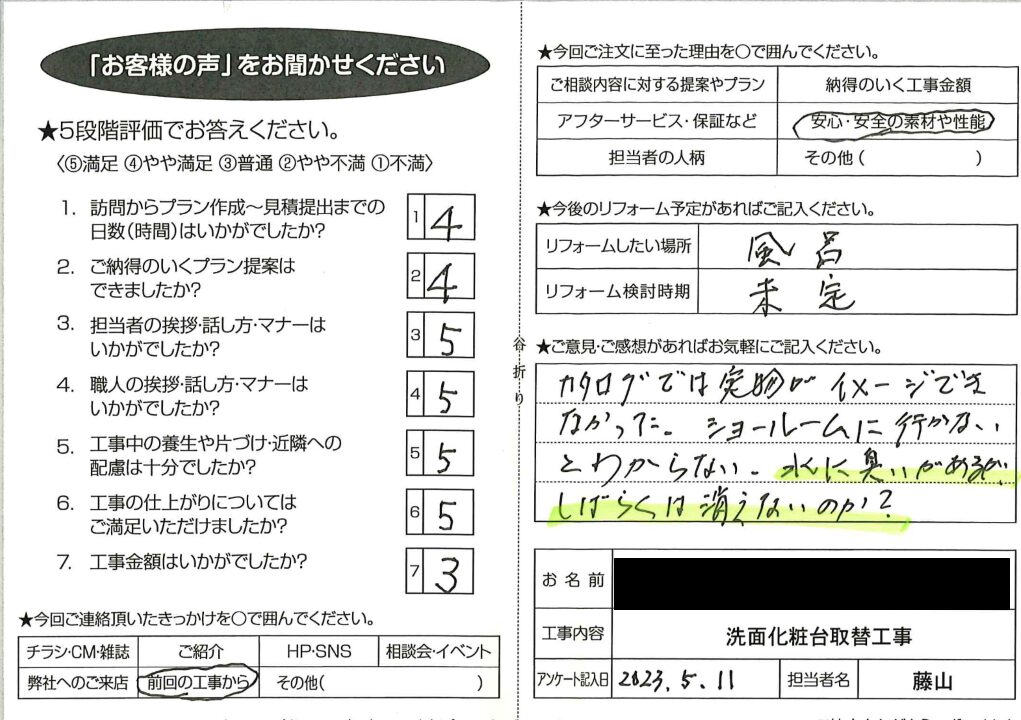 「お客様の声」をお聞かせください
★5段階評価でお答えください。
〈⑤満足 ④やや満足 ③普通 ②やや不満 ①不満〉
1. 訪問からプラン作成～見積提出までの
日数(時間)はいかがでしたか? 1 4
2. ご納得のいくプラン提案は
できましたか? 2 4
3. 担当者の挨拶・話し方・マナーは
いかがでしたか? 3 5
4. 職人の挨拶・話し方・マナーは
いかがでしたか? 4 5
5. 工事中の養生や片づけ・近隣への
配慮は十分でしたか? 5 5
6. 工事の仕上がりについては
ご満足いただけましたか? 6 5
7. 工事金額はいかがでしたか? 7 3
★今回ご連絡頂いたきっかけを〇で囲んでください。
チラシ・CM・雑誌 ご紹介 HP・SNS 相談会・イベント
弊社へのご来店 前回の工事から その他( )
谷折り
★今回ご注文に至った理由を〇で囲んでください。
ご相談内容に対する提案やプラン 納得のいく工事金額
アフターサービス・保証など 安心・安全の素材や性能
担当者の人柄 その他( )
★今後のリフォーム予定があればご記入ください。
リフォームしたい場所 風呂
リフォーム検討時期 未定
★ご意見・ご感想があればお気軽にご記入ください。
カタログでは実物がイメージでき
なかった。ショールームに行かない
とわからない。水に臭いがあるが、
しばらくは消えないのか?
お名前
工事内容 洗面化粧台取替工事
アンケート記入日 2023.5.11 担当者名 藤山